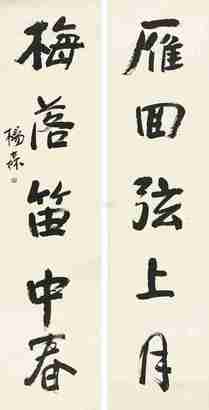 雁回弦上月
梅落笛中春
杨森